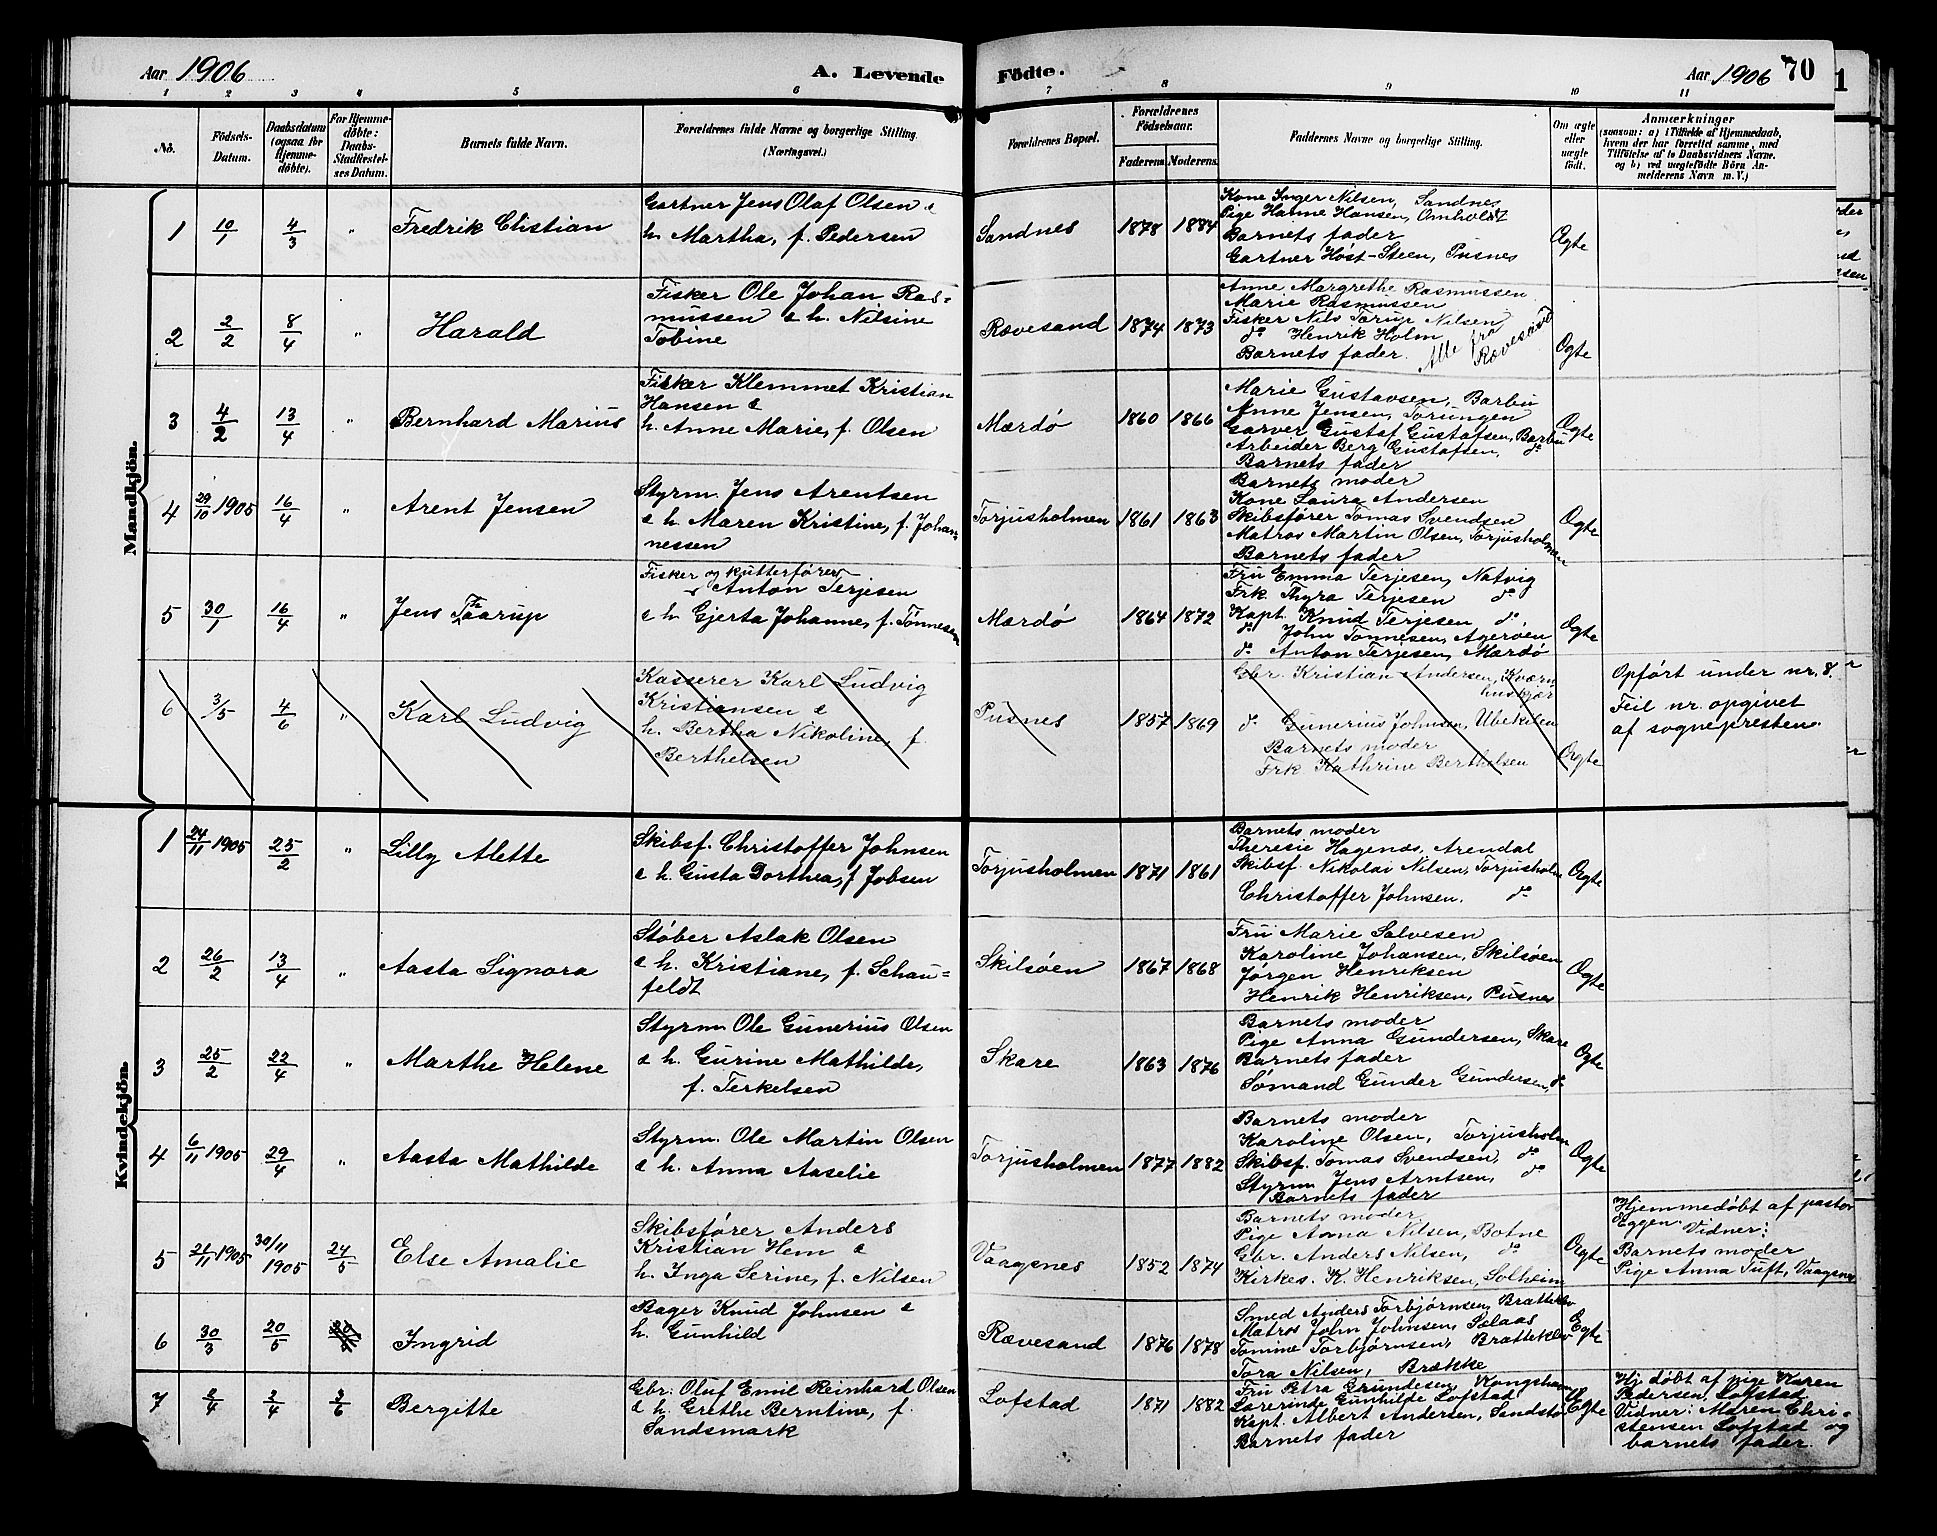 Aar 1906
A. Levende
Födte.
Aar 1906
70
1 2 3 4 5 6 7 8 9 10 11
No.
Födsels-
Datum.
Daabsdatum
(ogsaa for
Hjemme-
døbte).
For Hjemme-
døbte:
Daabs-
Stadfæstel-
ses Datum.
Barnets fulde Navn.
Forældrenes fulde Navne og borgerlige Stilling.
(Næringsvei.)
Forældrenes Bopæl.
Forældrenes
Födselsaar.
Faderens. Moderens.
Faddernes Navne og borgerlige Stilling.
Om ægte
eller
uægte
født.
Anmærkninger
(saasom: a) i Tilfælde af Hjemmedaab,
hvem der har forrettet samme, med
Tilföielse af to Daabsvidners Navne.
og b) ved uægtefödte Börn An-
melderens Navn m. V.)
Mandkjön.
1 10/1 4/3 " Fredrik Chistian
Gartner Jens Olaf Olsen &
h. Martha, f. Pedersen
Sandnes 1878 1884
Kone Inger Nilsen, Sandnes
Pige Hanne Hansen, Omholdt
Barnets fader
Gartner Höst-Steen, Pusnes
Ægte
2 2/2 8/4 " Harald
Fisker Ole Johan Ras-
mussen & h. Nilsine
Tobine
Rævesand 1874 1873
Anne Margrethe Rasmussen
Marie Rasmussen
Fisker Nils Torup Nilsen
do Henrik Holm
Barnets fader. Alle fra Rævesand
Ægte
3 4/2 13/4 " Bernhard Marius
Fisker Klemmet Kristian
Hansen &
h. Anne Marie, f. Olsen
Mærdö 1860 1866
Marie Gustavsen, Barbu
Anne Jensen, Torungen
Garver Gustaf Gustafsen, Barbu
Arbeider Berg Gustafsen, do
Barnets fader
Ægte
4 29/10 1905 16/4 " Arent Jensen
Styrm. Jens Arentsen
& h. Maren Kristine, f. Johan-
nessen
Torjusholmen 1861 1863
Barnets moder
Kone Laura Andersen
Skibsfører Tomas Svendsen
Matros Martin Olsen, Torjusholmen
Barnets fader
Ægte
5 30/1 16/4 " Jens Taarup
Fisker og kutterfører
Anton Terjesen
& h. Gjerta Johanne, f. Tønnesen
Mærdö 1864 1872
Fru Emma Terjesen, Natvig
Frk. Thyra Terjesen do
Kapt. Knud Terjesen do
do John Tönnesen, Ageröen
do Anton Terjesen, Mærdö
Ægte
6 3/5 4/6 " Karl Ludvig
Kasserer Karl Ludvig
Kristiansen &
h. Bertha Nikoline, f.
Berthelsen
Pusnes 1857 1869
Gbr. Kristian Andersen, Kværn
huskjær
do Gunerius Johnsen, Ubekilen
Barnets moder
Frk. Kathrine Berthelsen
Ægte
Opfört under nr. 8.
Feil nr. opgivet
af sognepresten.
Kvindekjön.
1 24/11 1905 25/2 " Lilly Alette
Skibsf. Christoffer Johnsen
& h. Gusta Dorthea, f. Jobsen
Torjusholmen 1871 1861
Barnets moder
Theresie Hagenæs, Arendal
Skibsf. Nikolai Nilsen, Torjusholm
Christoffer Johnsen. do
Ægte
2 26/2 13/4 " Aasta Signora
Støber Aslak Olsen
& h. Kristiane, f. Schau-
feldt
Skilsøen 1867 1868
Fru Marie Salvesen
Karoline Johansen, Skilsøen
Jörgen Henriksen
Henrik Henriksen, Pusnes
Ægte
3 25/2 22/4 " Marthe Helene
Styrm. Ole Gunerius Olsen
& h. Gurine Mathilde,
f. Terkelsen
Skare 1863 1876
Barnets moder
Pige Anna Gundersen, Skare
Barnets fader
Sømand Gunder Gundersen, do
Ægte
4 6/11 1905 29/4 " Aasta Mathilde
Styrm. Ole Martin Olsen
& h. Anna Aaselie
Torjusholmen 1877 1882
Barnets moder
Karoline Olsen, Torjusholm
Skibsf. Tomas Svendsen, do
Styrm. Jens Arntsen, do
Barnets fader
Ægte
5 21/11 1905 30/11 1905 24/5 Else Amalie
Skibsfører Anders
Kristian Hem &
h. Inga Serine, f. Nilsen
Vaagenes 1852 1874
Barnets moder
Pige Anna Nilsen, Botne
Gbr. Anders Nilsen, do
Kirkes. K. Henriksen, Solheim
Ægte
Hjemmedöbt af pastor
Eggen. Vidner:
Barnets moder
Pige Anna Tuft, Vaagenes
6 30/3 20/5 Ingrid
Bager Knud Johnsen &
h. Gunhild
Rævesand 1876 1878
Smed Anders Torbjørnsen, Bratteklev
Matros John Johnsen, Selaas
Tomine Torbjørnsen, Bratteklev
Tora Nilsen, Brække
Egte
7 2/4 2/4 3/6 Bergitte
Gbr. Oluf Emil Reinhard Olsen
& h. Grethe Berntine, f.
Sandsmark
Lofstad 1871 1882
Fru Petra Grundesen, Kongshavn
Lærerinde Gunhilde Lofstad
Kapt. Albert Andersen, Sandstø
Barnets fader
Egte
Hj. døbt af pige Karen
Pedersen, Lofstad
Vidner: Maren Chri-
stensen Lofstad og
barnets fader.